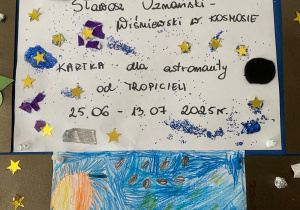 Sławosz Uznański -
Wiśniewski w KOSMOSIE
KARTKA dla astronauty
od TROPICIELI
25.06 13.07.2025r.